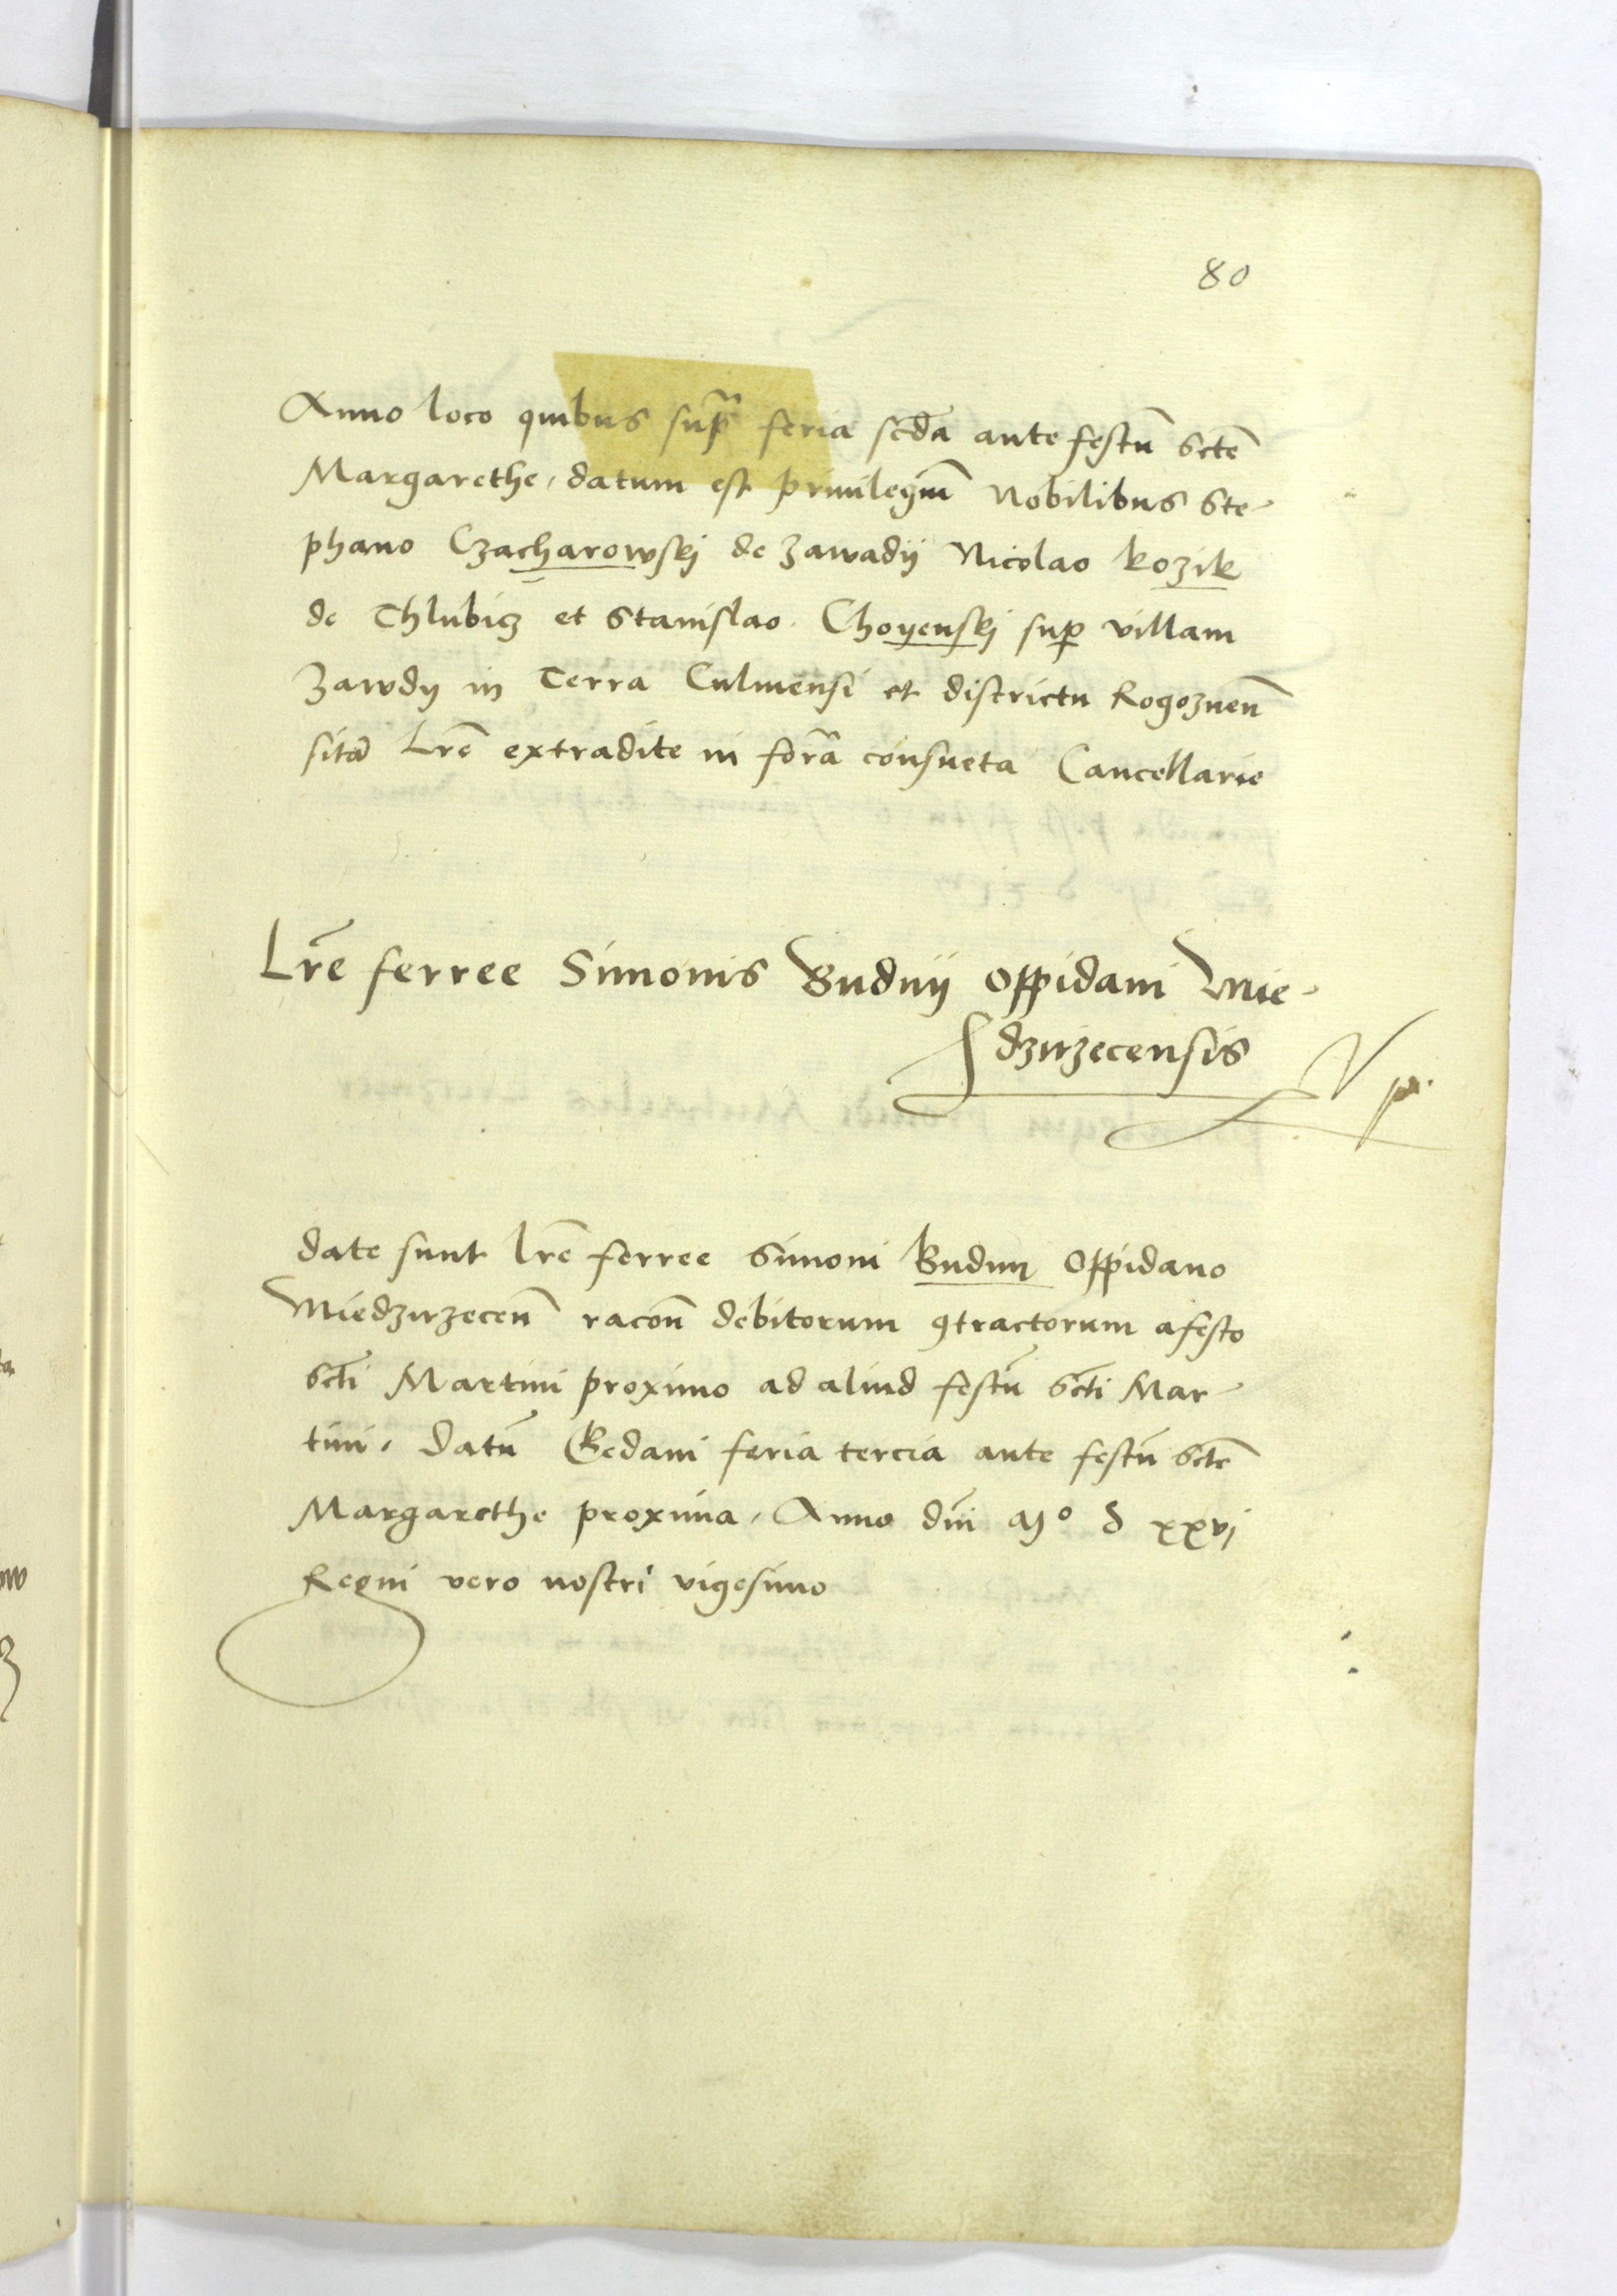 80
Anno loco quibus supᷓ feria scd̄a ante festū Scte̅
Margarethe, datum est priuilegiū Nobilibus Ste-
phano Czacharowskj de Zawadÿ Nicolao Kozik
de Chlubicz et Stanislao Choyenskj suꝑ villam
Zawdy in Terra Culmensi et districtu Rogoznen̄
sitā Lre̅ extradite in forᷓa consueta Cancellarie
Lre̅ ferree Simonis Budnÿ Oppidani Mie-
dzirzecensis
date sunt lre̅ ferree Simoni Budnÿ Oppidano
Miedzirzecen̄ racōn debitorum ꝯtractorum a festo
Scti̅ Martini proximo ad aliud festū Scti̅ Mar-
tini, Datū Gedani feria tercia ante festū Scte̅
Margarethe proxima, Anno dn̄i Mº D xxvj
Regni vero nostri vigesimo